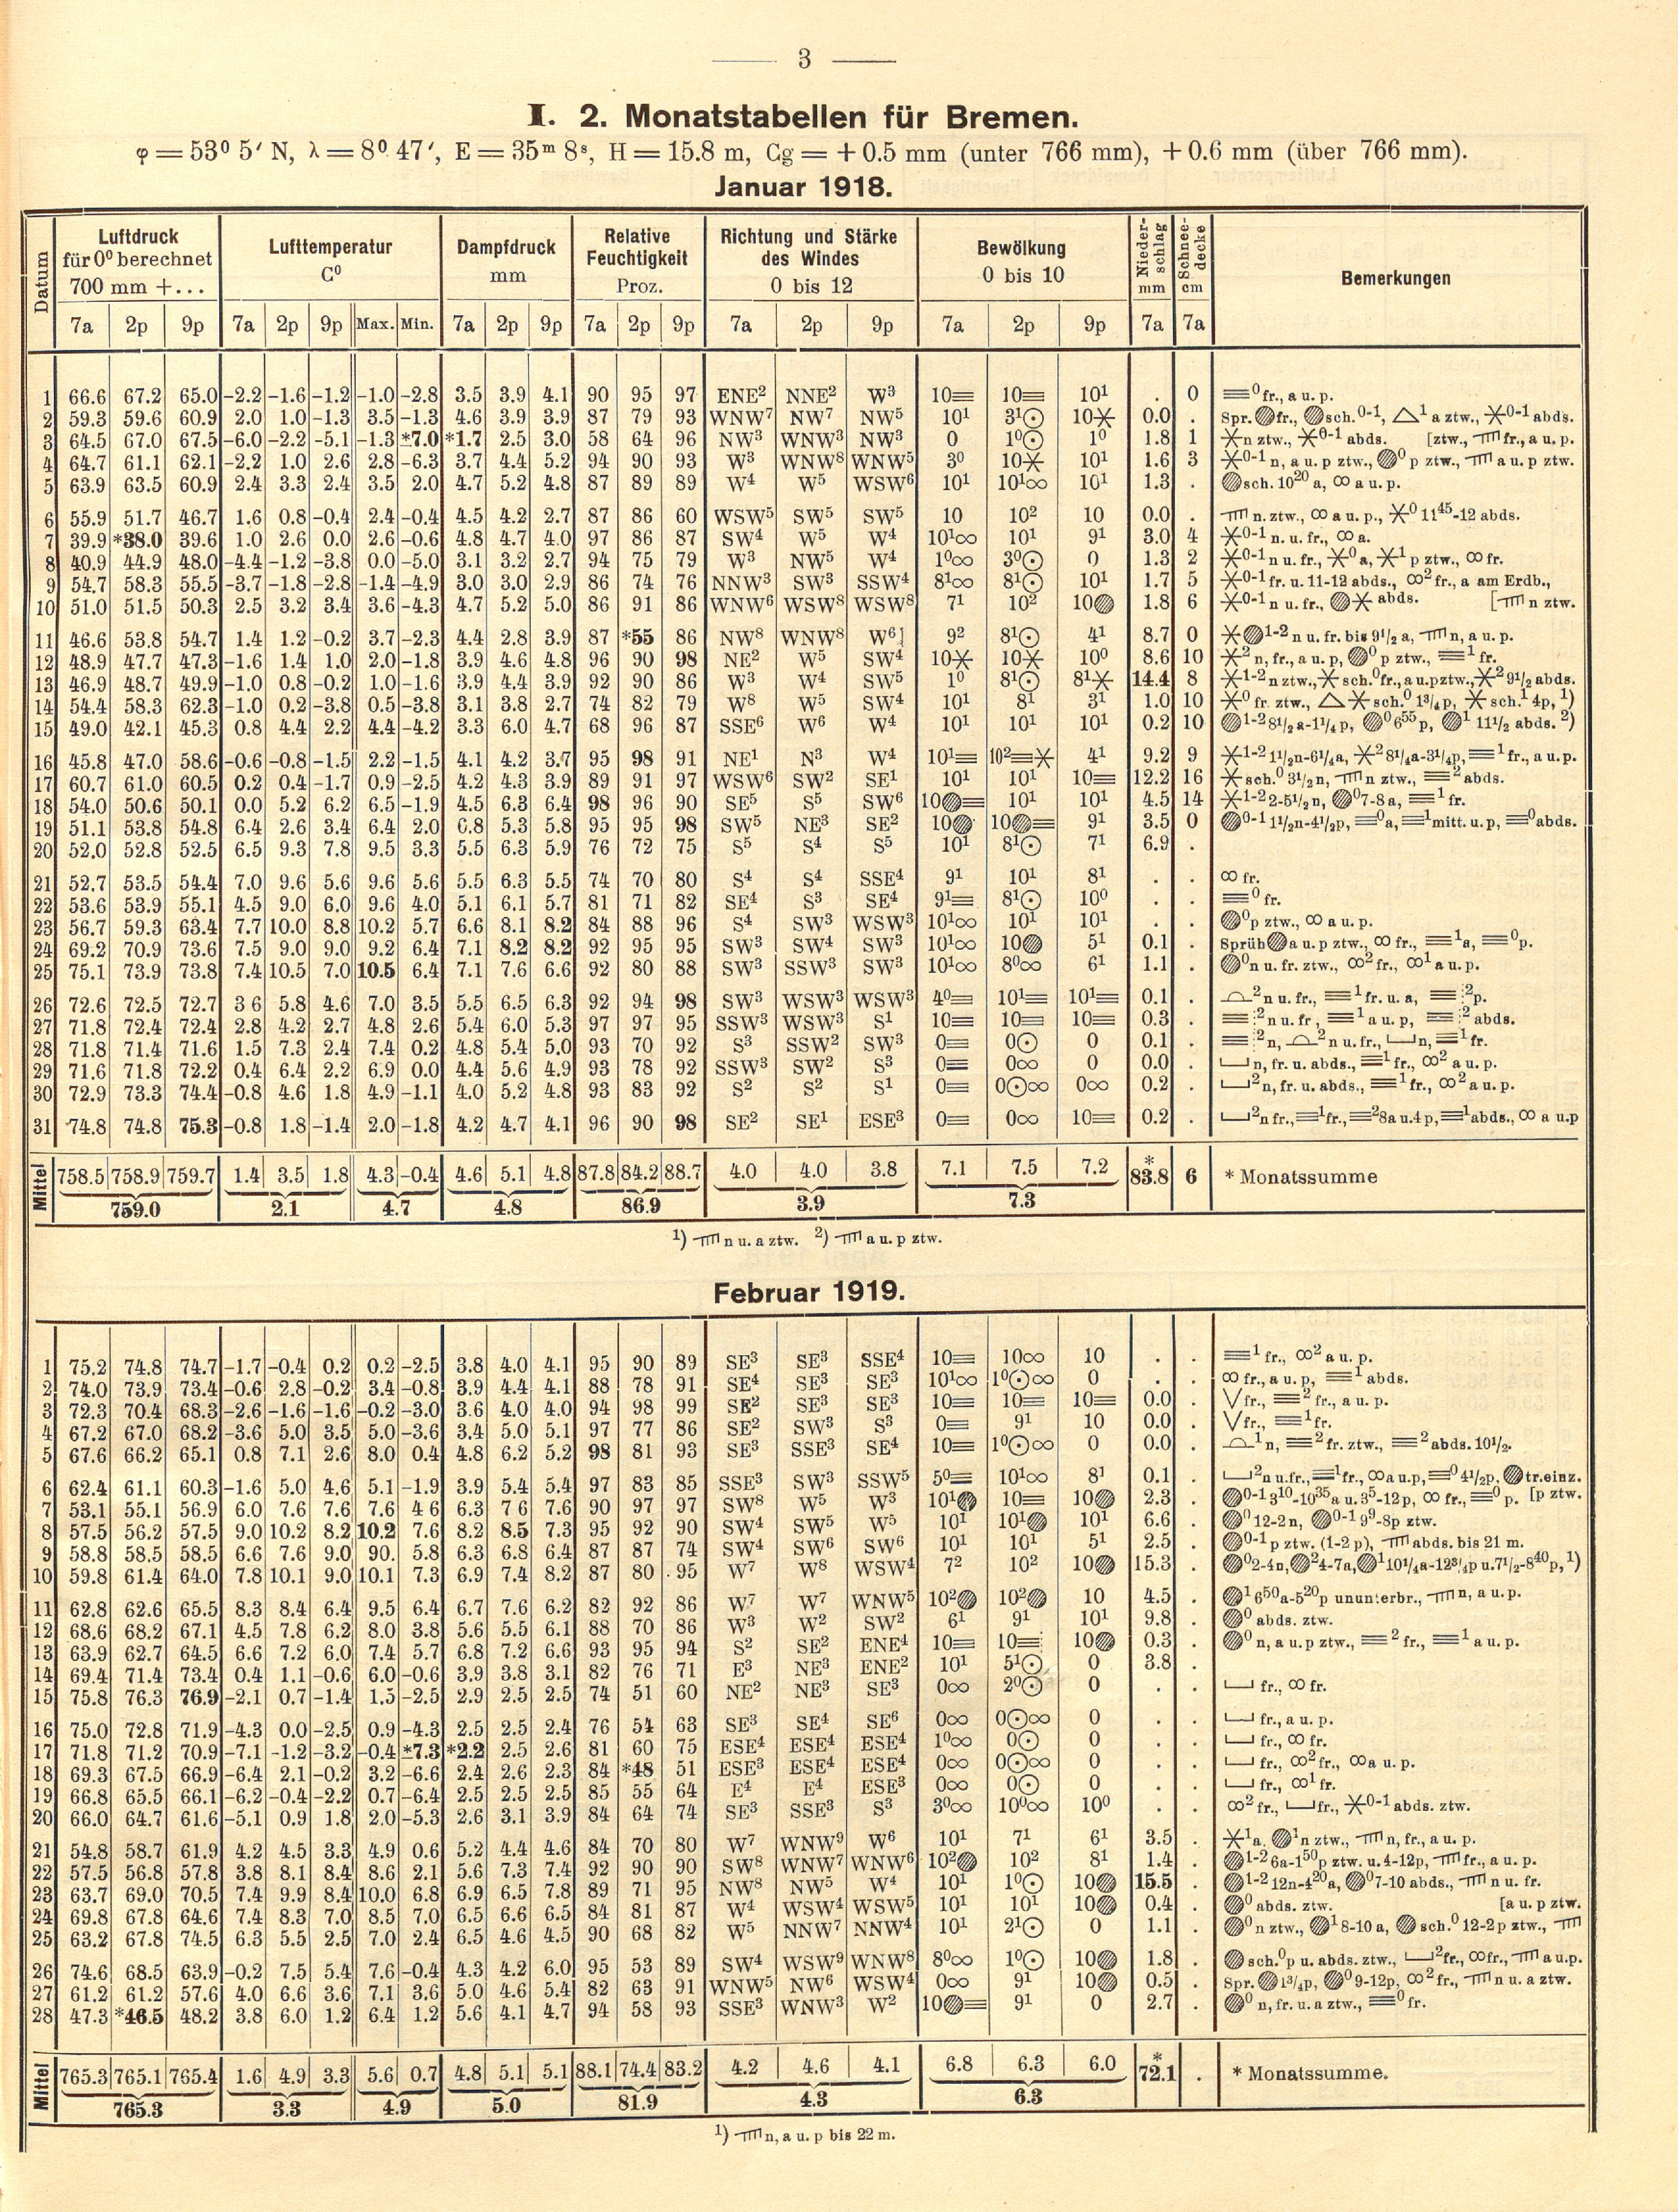 3
I. 2. Monatstabellen für Bremen.
φ = 53⁰ 5′ N, λ = 8⁰ 47′, E = 35ᵐ 8ˢ, H = 15.8 m, Cg = + 0.5 mm (unter 766 mm), + 0.6 mm (über 766 mm).
Januar 1918.
Datum Luftdruck für 0⁰ berechnet 700 mm +... Lufttemperatur C⁰ Dampfdruck mm Relative Feuchtigkeit Proz. Richtung und Stärke des Windes 0 bis 12 Bewölkung 0 bis 10 Niederschlag mm Schneedecke cm Bemerkungen
7a 2p 9p 7a 2p 9p Max. Min. 7a 2p 9p 7a 2p 9p 7a 2p 9p 7a 2p 9p 7a 7a
1 66.6 67.2 65.0 –2.2 –1.6 –1.2 –1.0 –2.8 3.5 3.9 4.1 90 95 97 ENE² NNE² W³ 10≡ 10≡ 10¹ . 0 ≡⁰ fr., a u. p.
2 59.3 59.6 60.9 2.0 1.0 –1.3 3.5 –1.3 4.6 3.9 3.9 87 79 93 WNW⁷ NW⁷ NW⁵ 10¹ 3¹⊙ 10✳ 0.0 . Spr. ◍ fr., ◍ sch.⁰⁻¹, △¹ a ztw., ✳⁰⁻¹ abds.
3 64.5 67.0 67.5 –6.0 –2.2 –5.1 –1.3 *7.0 *1.7 2.5 3.0 58 64 96 NW³ WNW³ NW³ 0 1⁰⊙ 1⁰ 1.8 1 ✳ n ztw., ✳⁰⁻¹ abds. [ztw., fr., a u. p.
4 64.7 61.1 62.1 –2.2 1.0 2.6 2.8 –6.3 3.7 4.4 5.2 94 90 93 W³ WNW⁸ WNW⁵ 3⁰ 10✳ 10¹ 1.6 3 ✳⁰⁻¹ n, a u. p ztw., ◍⁰ p ztw., a u. p ztw.
5 63.9 63.5 60.9 2.4 3.3 2.4 3.5 2.0 4.7 5.2 4.8 87 89 89 W⁴ W⁵ WSW⁶ 10¹ 10¹∞ 10¹ 1.3 . ◍ sch. 10²⁰ a, ∞ a u. p.
6 55.9 51.7 46.7 1.6 0.8 –0.4 2.4 –0.4 4.5 4.2 2.7 87 86 60 WSW⁵ SW⁵ SW⁵ 10 10² 10 0.0 . n. ztw., ∞ a u. p., ✳⁰ 11⁴⁵-12 abds.
7 39.9 *38.0 39.6 1.0 2.6 0.0 2.6 –0.6 4.8 4.7 4.0 97 86 87 SW⁴ W⁵ W⁴ 10¹∞ 10¹ 9¹ 3.0 4 ✳⁰⁻¹ n. u. fr., ∞ a.
8 40.9 44.9 48.0 –4.4 –1.2 –3.8 0.0 –5.0 3.1 3.2 2.7 94 75 79 W³ NW⁵ W⁴ 1⁰∞ 3⁰⊙ 0 1.3 2 ✳⁰⁻¹ n u. fr., ✳⁰ a, ✳¹ p ztw., ∞ fr.
9 54.7 58.3 55.5 –3.7 –1.8 –2.8 –1.4 –4.9 3.0 3.0 2.9 86 74 76 NNW³ SW³ SSW⁴ 8¹∞ 8¹⊙ 10¹ 1.7 5 ✳⁰⁻¹ fr. u. 11-12 abds., ∞² fr., a am Erdb.,
10 51.0 51.5 50.3 2.5 3.2 3.4 3.6 –4.3 4.7 5.2 5.0 86 91 86 WNW⁶ WSW⁸ WSW⁸ 7¹ 10² 10◍ 1.8 6 ✳⁰⁻¹ n u. fr., ◍✳ abds. [ n ztw.
11 46.6 53.8 54.7 1.4 1.2 –0.2 3.7 –2.3 4.4 2.8 3.9 87 *55 86 NW⁸ WNW⁸ W⁶ 9² 8¹⊙ 4¹ 8.7 0 ✳◍¹⁻² n u. fr. bis 9½ a, n, a u. p.
12 48.9 47.7 47.3 –1.6 1.4 1.0 2.0 –1.8 3.9 4.6 4.8 96 90 98 NE² W⁵ SW⁴ 10✳ 10✳ 10⁰ 8.6 10 ✳² n, fr., a u. p, ◍⁰ p ztw., ≡¹ fr.
13 46.9 48.7 49.9 –1.0 0.8 –0.2 1.0 –1.6 3.9 4.4 3.9 92 90 86 W³ W⁴ SW⁵ 1⁰ 8¹⊙ 8¹✳ 14.4 8 ✳¹⁻² n ztw., ✳ sch.⁰ fr., a u. p ztw., ✳² 9½ abds.
14 54.4 58.3 62.3 –1.0 0.2 –3.8 0.5 –3.8 3.1 3.8 2.7 74 82 79 W⁸ W⁵ SW⁴ 10¹ 8¹ 3¹ 1.0 10 ✳⁰ fr. ztw., △✳ sch.⁰ 1¾ p, ✳ sch.¹ 4p, ¹)
15 49.0 42.1 45.3 0.8 4.4 2.2 4.4 –4.2 3.3 6.0 4.7 68 96 87 SSE⁶ W⁶ W⁴ 10¹ 10¹ 10¹ 0.2 10 ◍¹⁻² 8½ a-1¼ p, ◍⁰ 6⁵⁵ p, ◍¹ 11½ abds. ²)
16 45.8 47.0 58.6 –0.6 –0.8 –1.5 2.2 –1.5 4.1 4.2 3.7 95 98 91 NE¹ N³ W⁴ 10¹≡ 10²≡✳ 4¹ 9.2 9 ✳¹⁻² 1½n-6¼a, ✳² 8¼a-3¼p, ≡¹ fr., a u. p.
17 60.7 61.0 60.5 0.2 0.4 –1.7 0.9 –2.5 4.2 4.3 3.9 89 91 97 WSW⁶ SW² SE¹ 10¹ 10¹ 10≡ 12.2 16 ✳ sch.⁰ 3½ n, n ztw., ≡² abds.
18 54.0 50.6 50.1 0.0 5.2 6.2 6.5 –1.9 4.5 6.3 6.4 98 96 90 SE⁵ S⁵ SW⁶ 10◍≡ 10¹ 10¹ 4.5 14 ✳¹⁻² 2-5½ n, ◍⁰ 7-8 a, ≡¹ fr.
19 51.1 53.8 54.8 6.4 2.6 3.4 6.4 2.0 6.8 5.3 5.8 95 95 98 SW⁵ NE³ SE² 10◍ 10◍≡ 9¹ 3.5 0 ◍⁰⁻¹ 1½n-4½p, ≡⁰ a, ≡¹ mitt. u. p, ≡⁰ abds.
20 52.0 52.8 52.5 6.5 9.3 7.8 9.5 3.3 5.5 6.3 5.9 76 72 75 S⁵ S⁴ S⁵ 10¹ 8¹⊙ 7¹ 6.9 .
21 52.7 53.5 54.4 7.0 9.6 5.6 9.6 5.6 5.5 6.3 5.5 74 70 80 S⁴ S⁴ SSE⁴ 9¹ 10¹ 8¹ . . ∞ fr.
22 53.6 53.9 55.1 4.5 9.0 6.0 9.6 4.0 5.1 6.1 5.7 81 71 82 SE⁴ S³ SE⁴ 9¹≡ 8¹⊙ 10⁰ . . ≡⁰ fr.
23 56.7 59.3 63.4 7.7 10.0 8.8 10.2 5.7 6.6 8.1 8.2 84 88 96 S⁴ SW³ WSW³ 10¹∞ 10¹ 10¹ . . ◍⁰ p ztw., ∞ a u. p.
24 69.2 70.9 73.6 7.5 9.0 9.0 9.2 6.4 7.1 8.2 8.2 92 95 95 SW³ SW⁴ SW³ 10¹∞ 10◍ 5¹ 0.1 . Sprüh◍ a u. p ztw., ∞ fr., ≡¹ a, ≡⁰ p.
25 75.1 73.9 73.8 7.4 10.5 7.0 10.5 6.4 7.1 7.6 6.6 92 80 88 SW³ SSW³ SW³ 10¹∞ 8⁰∞ 6¹ 1.1 . ◍⁰ n u. fr. ztw., ∞² fr., ∞¹ a u. p.
26 72.6 72.5 72.7 3 6 5.8 4.6 7.0 3.5 5.5 6.5 6.3 92 94 98 SW³ WSW³ WSW³ 4⁰≡ 10¹≡ 10¹≡ 0.1 . ⌓² n u. fr., ≡¹ fr. u. a, ≡² p.
27 71.8 72.4 72.4 2.8 4.2 2.7 4.8 2.6 5.4 6.0 5.3 97 97 95 SSW³ WSW³ S¹ 10≡ 10≡ 10≡ 0.3 . ≡² n u. fr, ≡¹ a u. p, ≡² abds.
28 71.8 71.4 71.6 1.5 7.3 2.4 7.4 0.2 4.8 5.4 5.0 93 70 92 S³ SSW² SW³ 0≡ 0⊙ 0 0.1 . ≡² n, ⌓² n u. fr., ⌴ n, ≡¹ fr.
29 71.6 71.8 72.2 0.4 6.4 2.2 6.9 0.0 4.4 5.6 4.9 93 78 92 SSW³ SW² S³ 0≡ 0∞ 0 0.0 . ⌴ n, fr. u. abds., ≡¹ fr., ∞² a u. p.
30 72.9 73.3 74.4 –0.8 4.6 1.8 4.9 –1.1 4.0 5.2 4.8 93 83 92 S² S² S¹ 0≡ 0⊙∞ 0∞ 0.2 . ⌴² n, fr. u. abds., ≡¹ fr., ∞² a u. p.
31 74.8 74.8 75.3 –0.8 1.8 –1.4 2.0 –1.8 4.2 4.7 4.1 96 90 98 SE² SE¹ ESE³ 0≡ 0∞ 10≡ 0.2 . ⌴² n fr., ≡¹ fr., ≡² 8a u. 4p, ≡¹ abds., ∞ a u. p
Mittel 758.5 758.9 759.7 1.4 3.5 1.8 4.3 –0.4 4.6 5.1 4.8 87.8 84.2 88.7 4.0 4.0 3.8 7.1 7.5 7.2 *83.8 6 * Monatssumme
759.0 2.1 4.7 4.8 86.9 3.9 7.3
¹) n u. a ztw. ²) a u. p ztw.
Februar 1919.
1 75.2 74.8 74.7 –1.7 –0.4 0.2 0.2 –2.5 3.8 4.0 4.1 95 90 89 SE³ SE³ SSE⁴ 10≡ 10∞ 10 . . ≡¹ fr., ∞² a u. p.
2 74.0 73.9 73.4 –0.6 2.8 –0.2 3.4 –0.8 3.9 4.4 4.1 88 78 91 SE⁴ SE³ SE³ 10¹∞ 1⁰⊙∞ 0 . . ∞ fr., a u. p, ≡¹ abds.
3 72.3 70.4 68.3 –2.6 –1.6 –1.6 –0.2 –3.0 3.6 4.0 4.0 94 98 99 SE² SE³ SE³ 10≡ 10≡ 10≡ 0.0 . V fr., ≡² fr., a u. p.
4 67.2 67.0 68.2 –3.6 5.0 3.5 5.0 –3.6 3.4 5.0 5.1 97 77 86 SE² SW³ S³ 0≡ 9¹ 10 0.0 . V fr., ≡¹ fr.
5 67.6 66.2 65.1 0.8 7.1 2.6 8.0 0.4 4.8 6.2 5.2 98 81 93 SE³ SSE³ SE⁴ 10≡ 1⁰⊙∞ 0 0.0 . ⌓¹ n, ≡² fr. ztw., ≡² abds. 10½.
6 62.4 61.1 60.3 –1.6 5.0 4.6 5.1 –1.9 3.9 5.4 5.4 97 83 85 SSE³ SW³ SSW⁵ 5⁰≡ 10¹∞ 8¹ 0.1 . ⌴² n u. fr., ≡¹ fr., ∞ a u. p, ≡⁰ 4½p, ◍ tr. einz.
7 53.1 55.1 56.9 6.0 7.6 7.6 7.6 4 6 6.3 7 6 7.6 90 97 97 SW⁸ W⁵ W³ 10¹◍ 10≡ 10◍ 2.3 . ◍⁰⁻¹ 3¹⁰-10³⁵ a u. 3⁵-12 p, ∞ fr., ≡⁰ p. [p ztw.
8 57.5 56.2 57.5 9.0 10.2 8.2 10.2 7.6 8.2 8.5 7.3 95 92 90 SW⁴ SW⁵ W⁵ 10¹ 10¹◍ 10¹ 6.6 . ◍⁰ 12-2 n, ◍⁰⁻¹ 9⁹-8p ztw.
9 58.8 58.5 58.5 6.6 7.6 9.0 90. 5.8 6.3 6.8 6.4 87 87 74 SW⁴ SW⁶ SW⁶ 10¹ 10¹ 5¹ 2.5 . ◍⁰⁻¹ p ztw. (1-2 p), abds. bis 21 m.
10 59.8 61.4 64.0 7.8 10.1 9.0 10.1 7.3 6.9 7.4 8.2 87 80 95 W⁷ W⁸ WSW⁴ 7² 10² 10◍ 15.3 . ◍⁰ 2-4n, ◍² 4-7a, ◍¹ 10¼a-12¾p u. 7½-8⁴⁰p, ¹)
11 62.8 62.6 65.5 8.3 8.4 6.4 9.5 6.4 6.7 7.6 6.2 82 92 86 W⁷ W⁷ WNW⁵ 10²◍ 10²◍ 10 4.5 . ◍¹ 6⁵⁰a-5²⁰p ununterbr., n, a u. p.
12 68.6 68.2 67.1 4.5 7.8 6.2 8.0 3.8 5.6 5.5 6.1 88 70 86 W³ W² SW² 6¹ 9¹ 10¹ 9.8 . ◍⁰ abds. ztw.
13 63.9 62.7 64.5 6.6 7.2 6.0 7.4 5.7 6.8 7.2 6.6 93 95 94 S² SE² ENE⁴ 10≡ 10≡ 10◍ 0.3 . ◍⁰ n, a u. p ztw., ≡² fr., ≡¹ a u. p.
14 69.4 71.4 73.4 0.4 1.1 –0.6 6.0 –0.6 3.9 3.8 3.1 82 76 71 E³ NE³ ENE² 10¹ 5¹⊙ 0 3.8 .
15 75.8 76.3 76.9 –2.1 0.7 –1.4 1.5 –2.5 2.9 2.5 2.5 74 51 60 NE² NE³ SE³ 0∞ 2⁰⊙ 0 . . ⌴ fr., ∞ fr.
16 75.0 72.8 71.9 –4.3 0.0 –2.5 0.9 –4.3 2.5 2.5 2.4 76 54 63 SE³ SE⁴ SE⁶ 0∞ 0⊙∞ 0 . . ⌴ fr., a u. p.
17 71.8 71.2 70.9 –7.1 –1.2 –3.2 –0.4 *7.3 *2.2 2.5 2.6 81 60 75 ESE⁴ ESE⁴ ESE⁴ 1⁰∞ 0⊙ 0 . . ⌴ fr., ∞ fr.
18 69.3 67.5 66.9 –6.4 2.1 –0.2 3.2 –6.6 2.4 2.6 2.3 84 *48 51 ESE³ ESE⁴ ESE⁴ 0∞ 0⊙∞ 0 . . ⌴ fr., ∞² fr., ∞ a u. p.
19 66.8 65.5 66.1 –6.2 –0.4 –2.2 0.7 –6.4 2.5 2.5 2.5 85 55 64 E⁴ E⁴ ESE³ 0∞ 0⊙ 0 . . ⌴ fr., ∞¹ fr.
20 66.0 64.7 61.6 –5.1 0.9 1.8 2.0 –5.3 2.6 3.1 3.9 84 64 74 SE³ SSE³ S³ 3⁰∞ 10⁰∞ 10⁰ . . ∞² fr., ⌴ fr., ✳⁰⁻¹ abds. ztw.
21 54.8 58.7 61.9 4.2 4.5 3.3 4.9 0.6 5.2 4.4 4.6 84 70 80 W⁷ WNW⁹ W⁶ 10¹ 7¹ 6¹ 3.5 . ✳¹ a. ◍¹ n ztw., n, fr., a u. p.
22 57.5 56.8 57.8 3.8 8.1 8.4 8.6 2.1 5.6 7.3 7.4 92 90 90 SW⁸ WNW⁷ WNW⁶ 10²◍ 10² 8¹ 1.4 . ◍¹⁻² 6a-1⁵⁰ p ztw. u. 4-12p, fr., a u. p.
23 63.7 69.0 70.5 7.4 9.9 8.4 10.0 6.8 6.9 6.5 7.8 89 71 95 NW⁸ NW⁵ W⁴ 10¹ 1⁰⊙ 10◍ 15.5 . ◍¹⁻² 12n-4²⁰ a, ◍⁰ 7-10 abds., n u. fr.
24 69.8 67.8 64.6 7.4 8.3 7.0 8.5 7.0 6.5 6.6 6.5 84 81 87 W⁴ WSW⁴ WSW⁵ 10¹ 10¹ 10◍ 0.4 . ◍⁰ abds. ztw. [a u. p ztw.
25 63.2 67.8 74.5 6.3 5.5 2.5 7.0 2.4 6.5 4.6 4.5 90 68 82 W⁵ NNW⁷ NNW⁴ 10¹ 2¹⊙ 0 1.1 . ◍⁰ n ztw., ◍¹ 8-10 a, ◍ sch.⁰ 12-2 p ztw.,
26 74.6 68.5 63.9 –0.2 7.5 5.4 7.6 –0.4 4.3 4.2 6.0 95 53 89 SW⁴ WSW⁹ WNW⁸ 8⁰∞ 1⁰⊙ 10◍ 1.8 . ◍ sch.⁰ p u. abds. ztw., ⌴² fr., ∞ fr., a u. p.
27 61.2 61.2 57.6 4.0 6.6 3.6 7.1 3.6 5.0 4.6 5.4 82 63 91 WNW⁵ NW⁶ WSW⁴ 0∞ 9¹ 10◍ 0.5 . Spr. ◍ 1¾p, ◍⁰ 9-12p, ∞² fr., n u. a ztw.
28 47.3 *46.5 48.2 3.8 6.0 1.2 6.4 1.2 5.6 4.1 4.7 94 58 93 SSE³ WNW³ W² 10◍≡ 9¹ 0 2.7 . ◍⁰ n, fr. u. a ztw., ≡⁰ fr.
Mittel 765.3 765.1 765.4 1.6 4.9 3.3 5.6 0.7 4.8 5.1 5.1 88.1 74.4 83.2 4.2 4.6 4.1 6.8 6.3 6.0 *72.1 . * Monatssumme.
765.3 3.3 4.9 5.0 81.9 4.3 6.3
¹) n, a u. p bis 22 m.